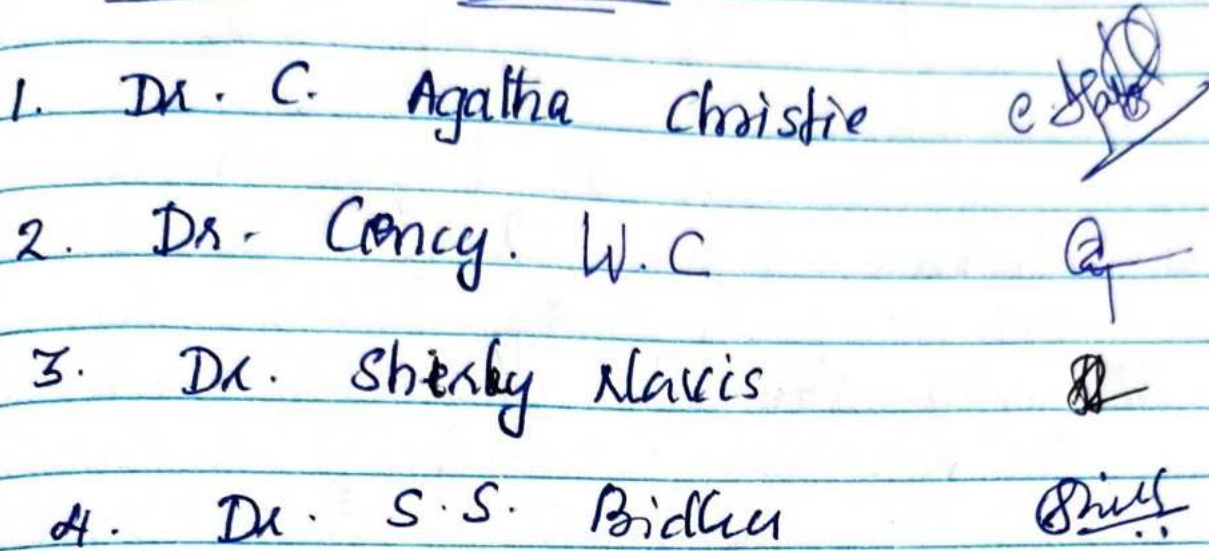 1. Dr. C. Agatha Christie
2. Dr. Cency. W.C
3. Dr. Sherly Navis
4. Dr. S.S. Bidhu